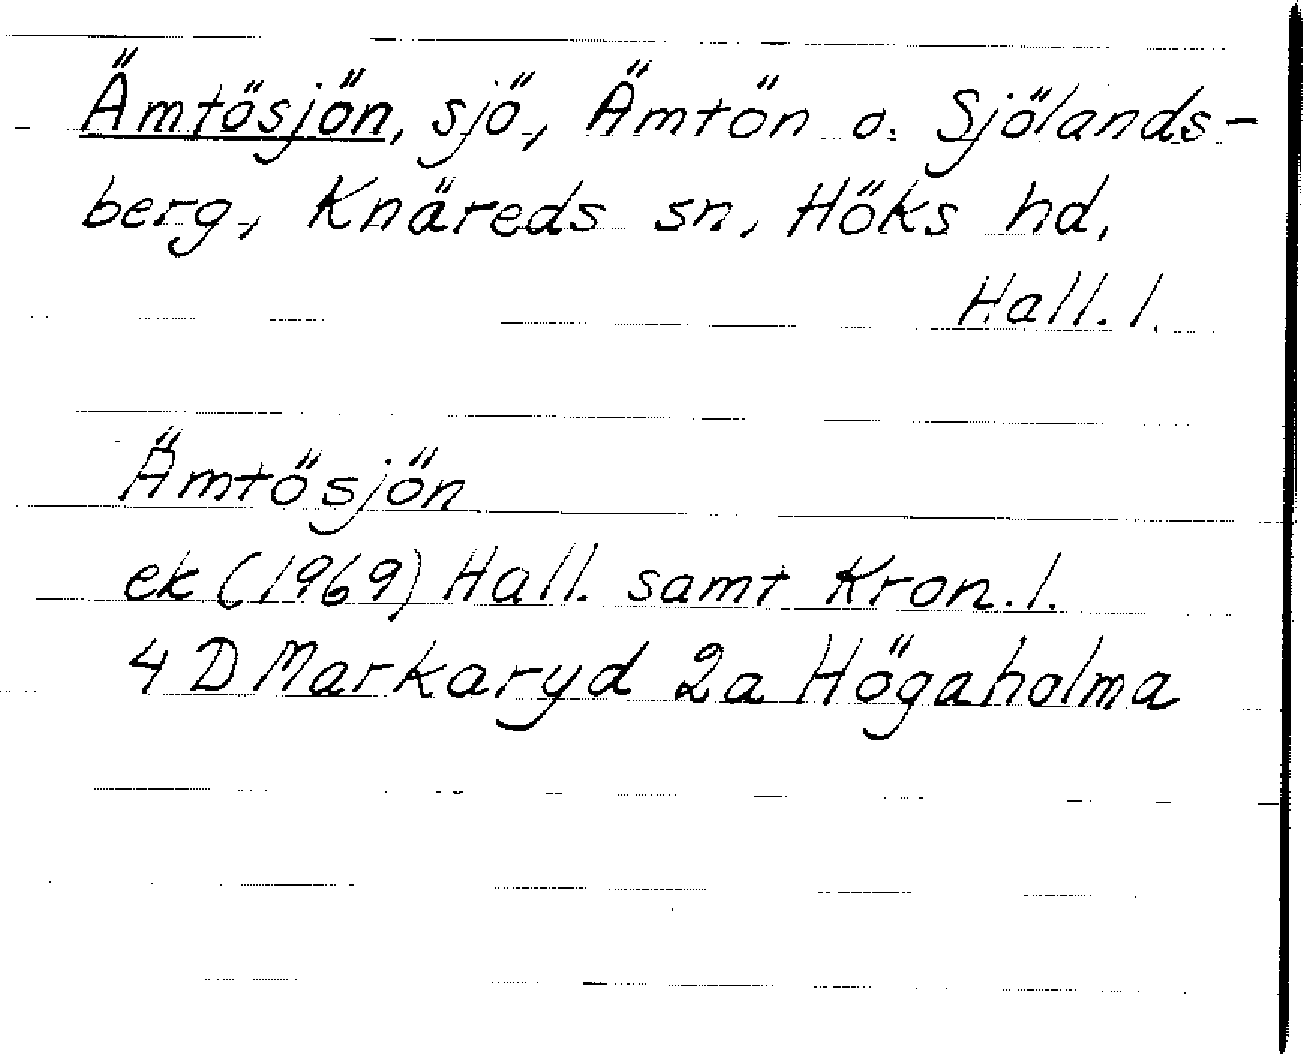 Ämtösjön, sjö, Ämtön o. Sjölands-
berg, Knäreds sn, Höks hd,
Hall. l.
Ämtösjön
ek (1969) Hall. samt Kron. l.
4 D Markaryd 2a Högaholma